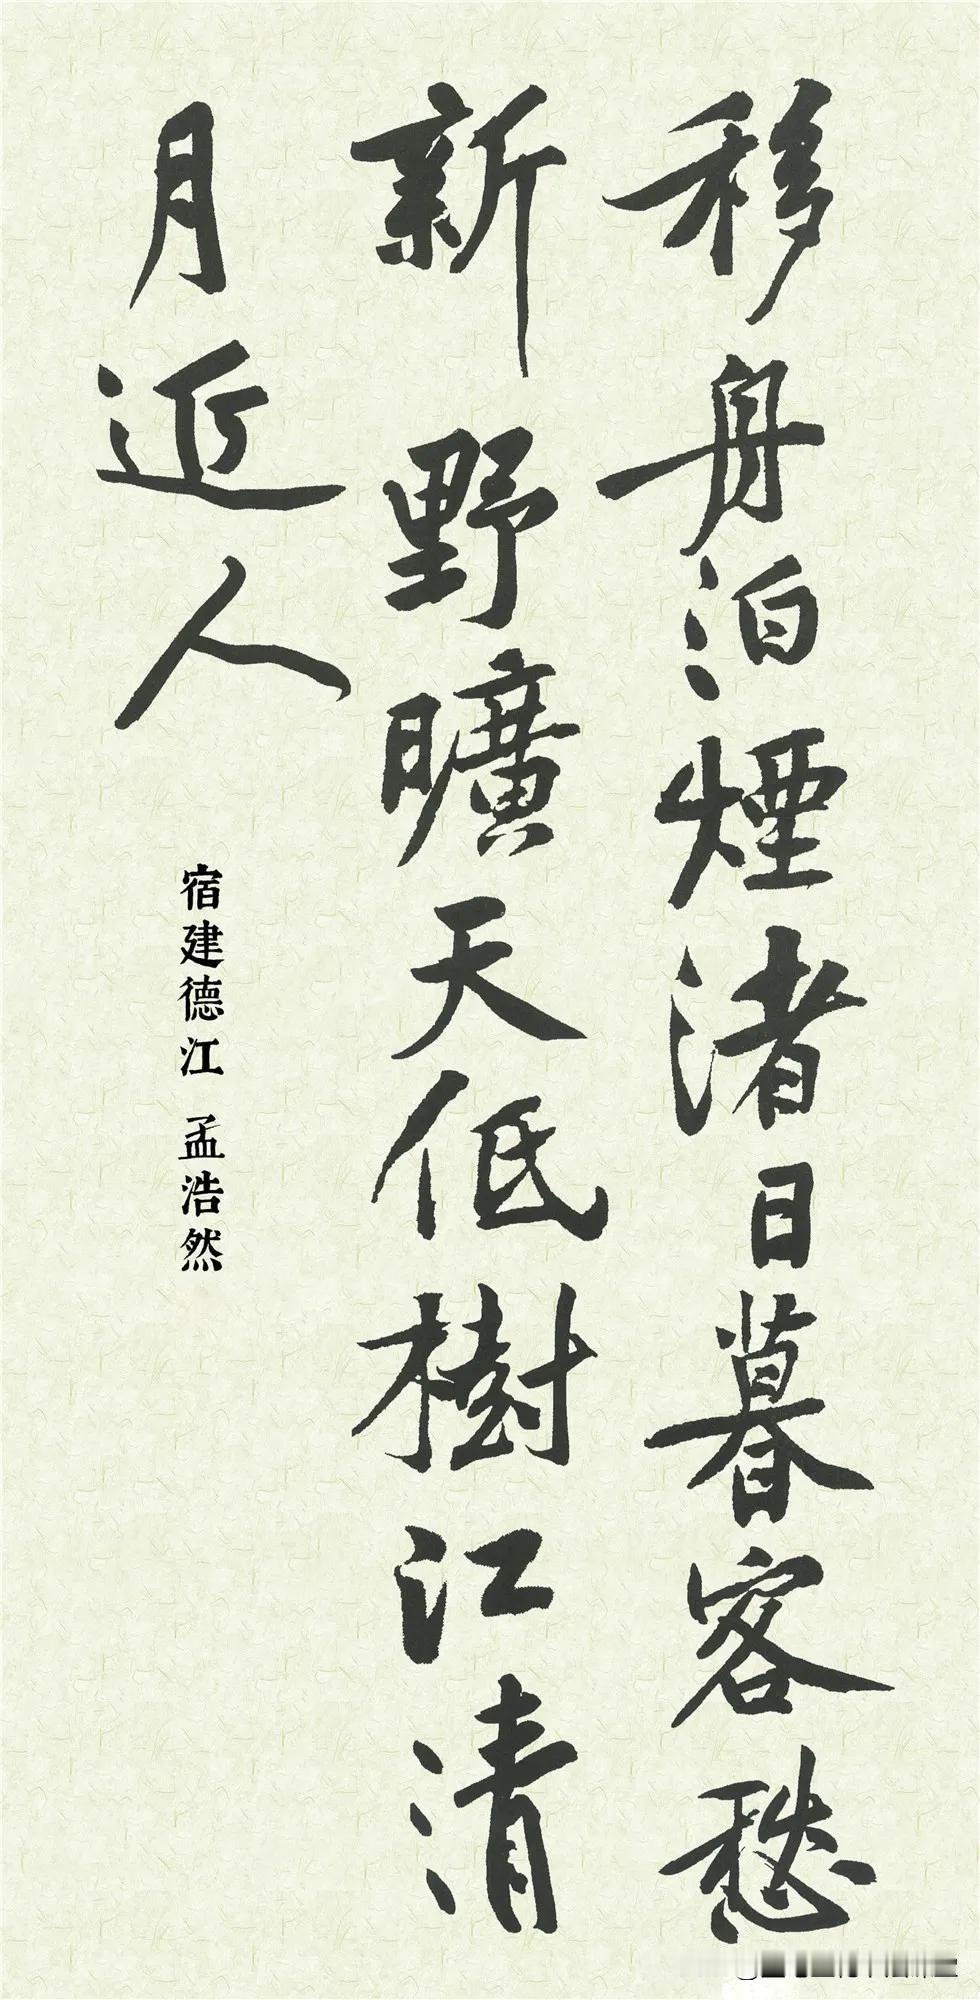 移舟泊煙渚日暮客愁
新野曠天低樹江清
月近人
宿建德江 孟浩然